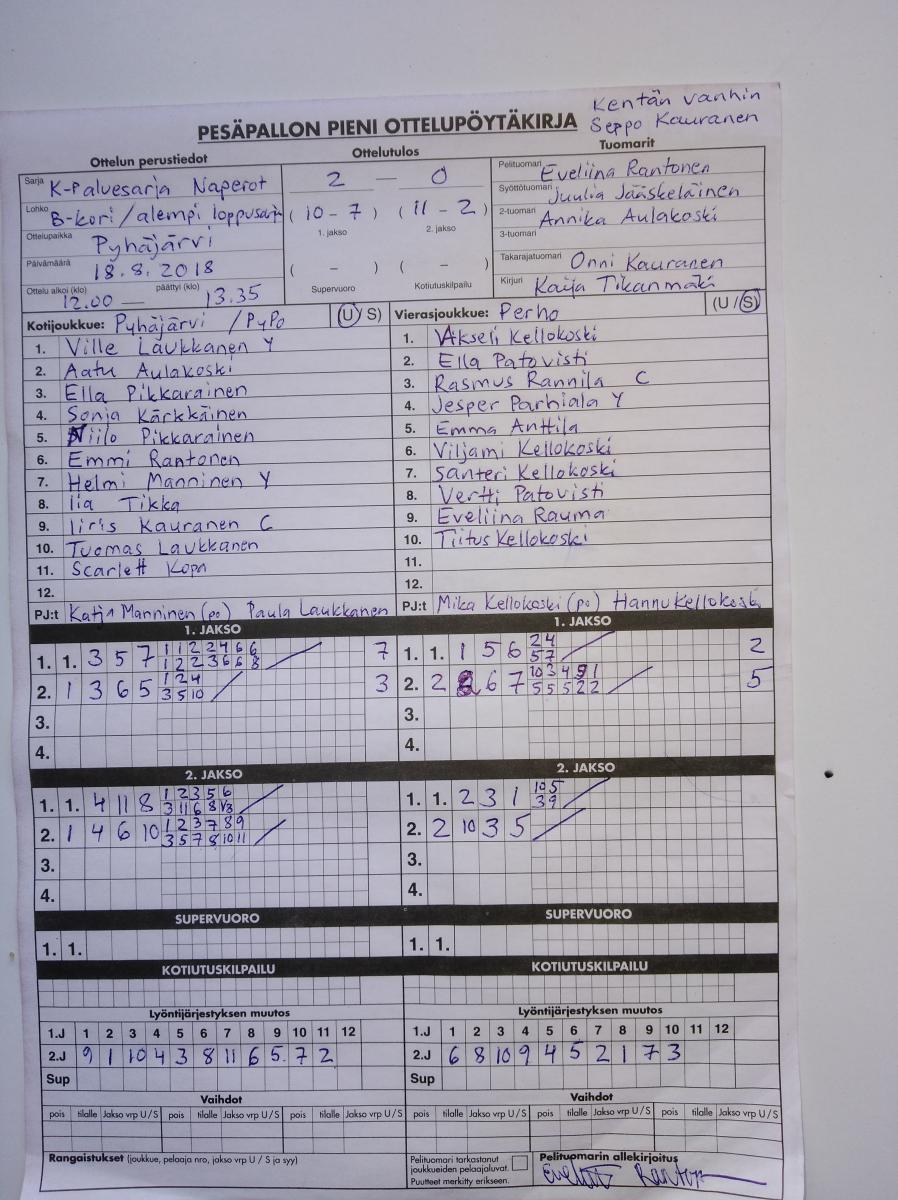 Kentän vanhin
Seppo Kauranen
PESÄPALLON PIENI OTTELUPÖYTÄKIRJA
Ottelun perustiedot
Sarja K-Paluesarja Naperot
Lohko B-kori/alempi loppusarja
Ottelupaikka Pyhäjärvi
Päivämäärä 18.8.2018
Ottelu alkoi (klo) 12.00 — päättyi (klo) 13.35
Ottelutulos
2 — 0
(10 - 7) (11 - 2)
1. jakso 2. jakso
( - ) ( - )
Supervuoro Kotiutuskilpailu
Tuomarit
Pelituomari Eveliina Rantonen
Syöttötuomari Juulia Jääskeläinen
2-tuomari Annika Aulakoski
3-tuomari
Takarajatuomari Onni Kauranen
Kirjuri Kaija Tikanmäki
Kotijoukkue: Pyhäjärvi /PyPo (U/S)
1. Ville Laukkanen Y
2. Aatu Aulakoski
3. Ella Pikkarainen
4. Sonja Kärkkäinen
5. Niilo Pikkarainen
6. Emmi Rantonen
7. Helmi Manninen Y
8. Iia Tikka
9. Iiris Kauranen C
10. Tuomas Laukkanen
11. Scarlett Kopa
12.
PJ:t Katja Manninen (po) Paula Laukkanen
Vierasjoukkue: Perho (U/S)
1. Akseli Kellokoski
2. Ella Patovisti
3. Rasmus Rannila C
4. Jesper Parhiala Y
5. Emma Anttila
6. Viljami Kellokoski
7. Santeri Kellokoski
8. Vertti Patovisti
9. Eveliina Rauma
10. Tiitus Kellokoski
11.
12.
PJ:t Mika Kellokoski (po) Hannu Kellokoski
1. JAKSO
1. 1. 3 5 7 1 1 2 2 4 6 6 7
1 2 2 3 6 6 8
2. 1 3 6 5 1 2 4 3
3 5 10
3.
4.
1. JAKSO
1. 1. 1 5 6 2 4 2
5 7
2. 2 6 7 10 3 4 9 1 5
5 5 5 2 2
3.
4.
2. JAKSO
1. 1. 4 11 8 1 2 3 5 6
3 11 6 8
2. 1 4 6 10 1 2 3 7 8 9
3 5 7 8 10 11
3.
4.
2. JAKSO
1. 1. 2 3 1 10 5
3 9
2. 2 10 3 5
3.
4.
SUPERVUORO
1. 1.
SUPERVUORO
1. 1.
KOTIUTUSKILPAILU
KOTIUTUSKILPAILU
Lyöntijärjestyksen muutos
1.J 1 2 3 4 5 6 7 8 9 10 11 12
2.J 9 1 10 4 3 8 11 6 5 7 2
Sup
Lyöntijärjestyksen muutos
1.J 1 2 3 4 5 6 7 8 9 10 11 12
2.J 6 8 10 9 4 5 2 1 7 3
Sup
Vaihdot
pois tilalle Jakso vrp U/S pois tilalle Jakso vrp U/S pois tilalle Jakso vrp U/S
Vaihdot
pois tilalle Jakso vrp U/S pois tilalle Jakso vrp U/S pois tilalle Jakso vrp U/S
Rangaistukset (joukkue, pelaaja nro, jakso vrp U / S ja syy)
Pelituomari tarkastanut
joukkueiden pelaajaluvat.
Puutteet merkitty erikseen.
Pelituomarin allekirjoitus